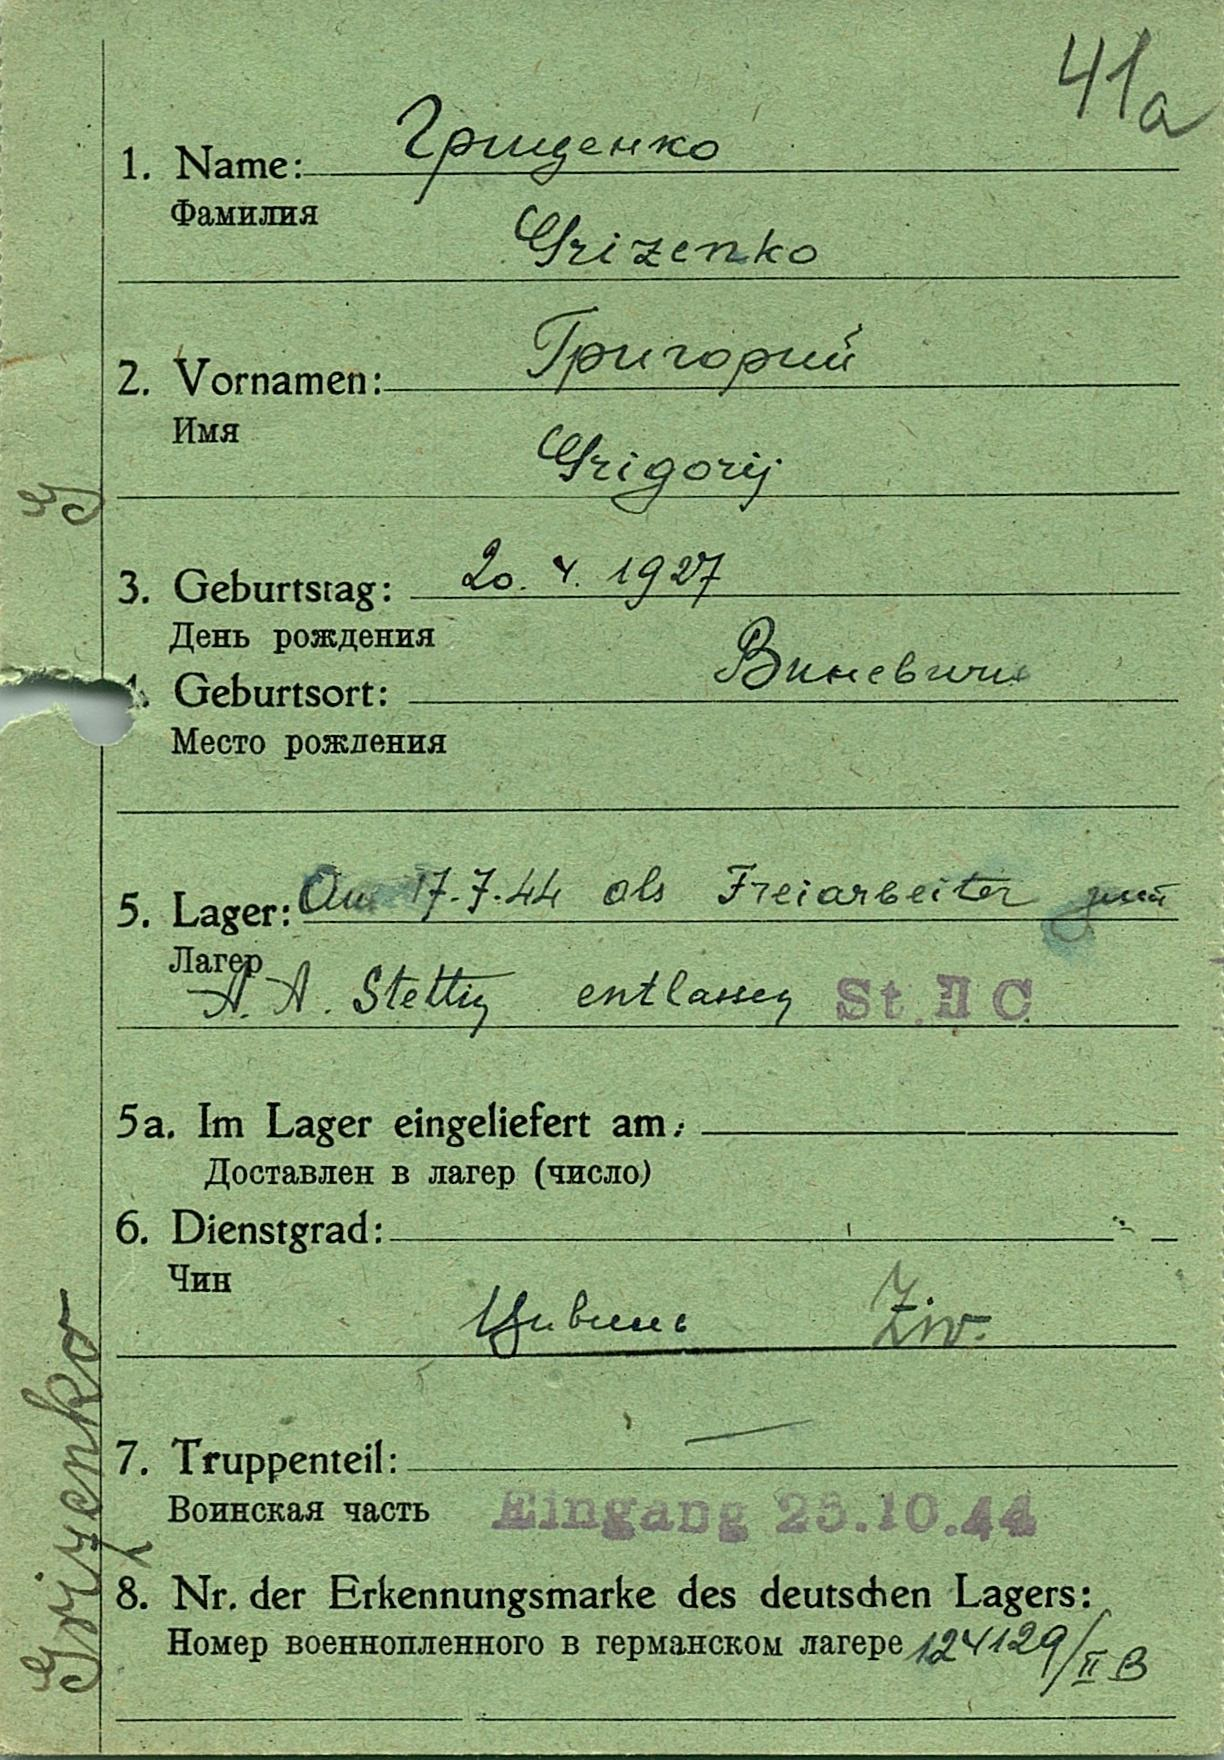 41a
1. Name: Грищенко
Фамилия
Grizenko
2. Vornamen: Григорий
Имя
Grigorij
G
3. Geburtstag: 20. 4. 1927
День рождения
4. Geburtsort:
Место рождения
5. Lager: Am 17.7.44 als Freiarbeiter zum
Лагер
A. A. Stettin entlassen St. II C
5a. Im Lager eingeliefert am:
Доставлен в лагер (число)
6. Dienstgrad:
Чин
Цивиль Ziv.
7. Truppenteil: —
Воинская часть Eingang 23.10.44
8. Nr. der Erkennungsmarke des deutschen Lagers:
Номер военнопленного в германском лагере 124129/II B
Grizenko